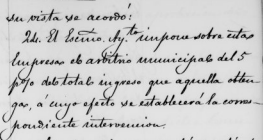 su vista se acordó:
2da. El Escmo. Ayto. impone sobre estas
Empresas el arbitrio municipal del 5
p% del total ingreso que aquella obten-
gas, a cuyo efecto se establecerá la corres-
pondiente intervencion.